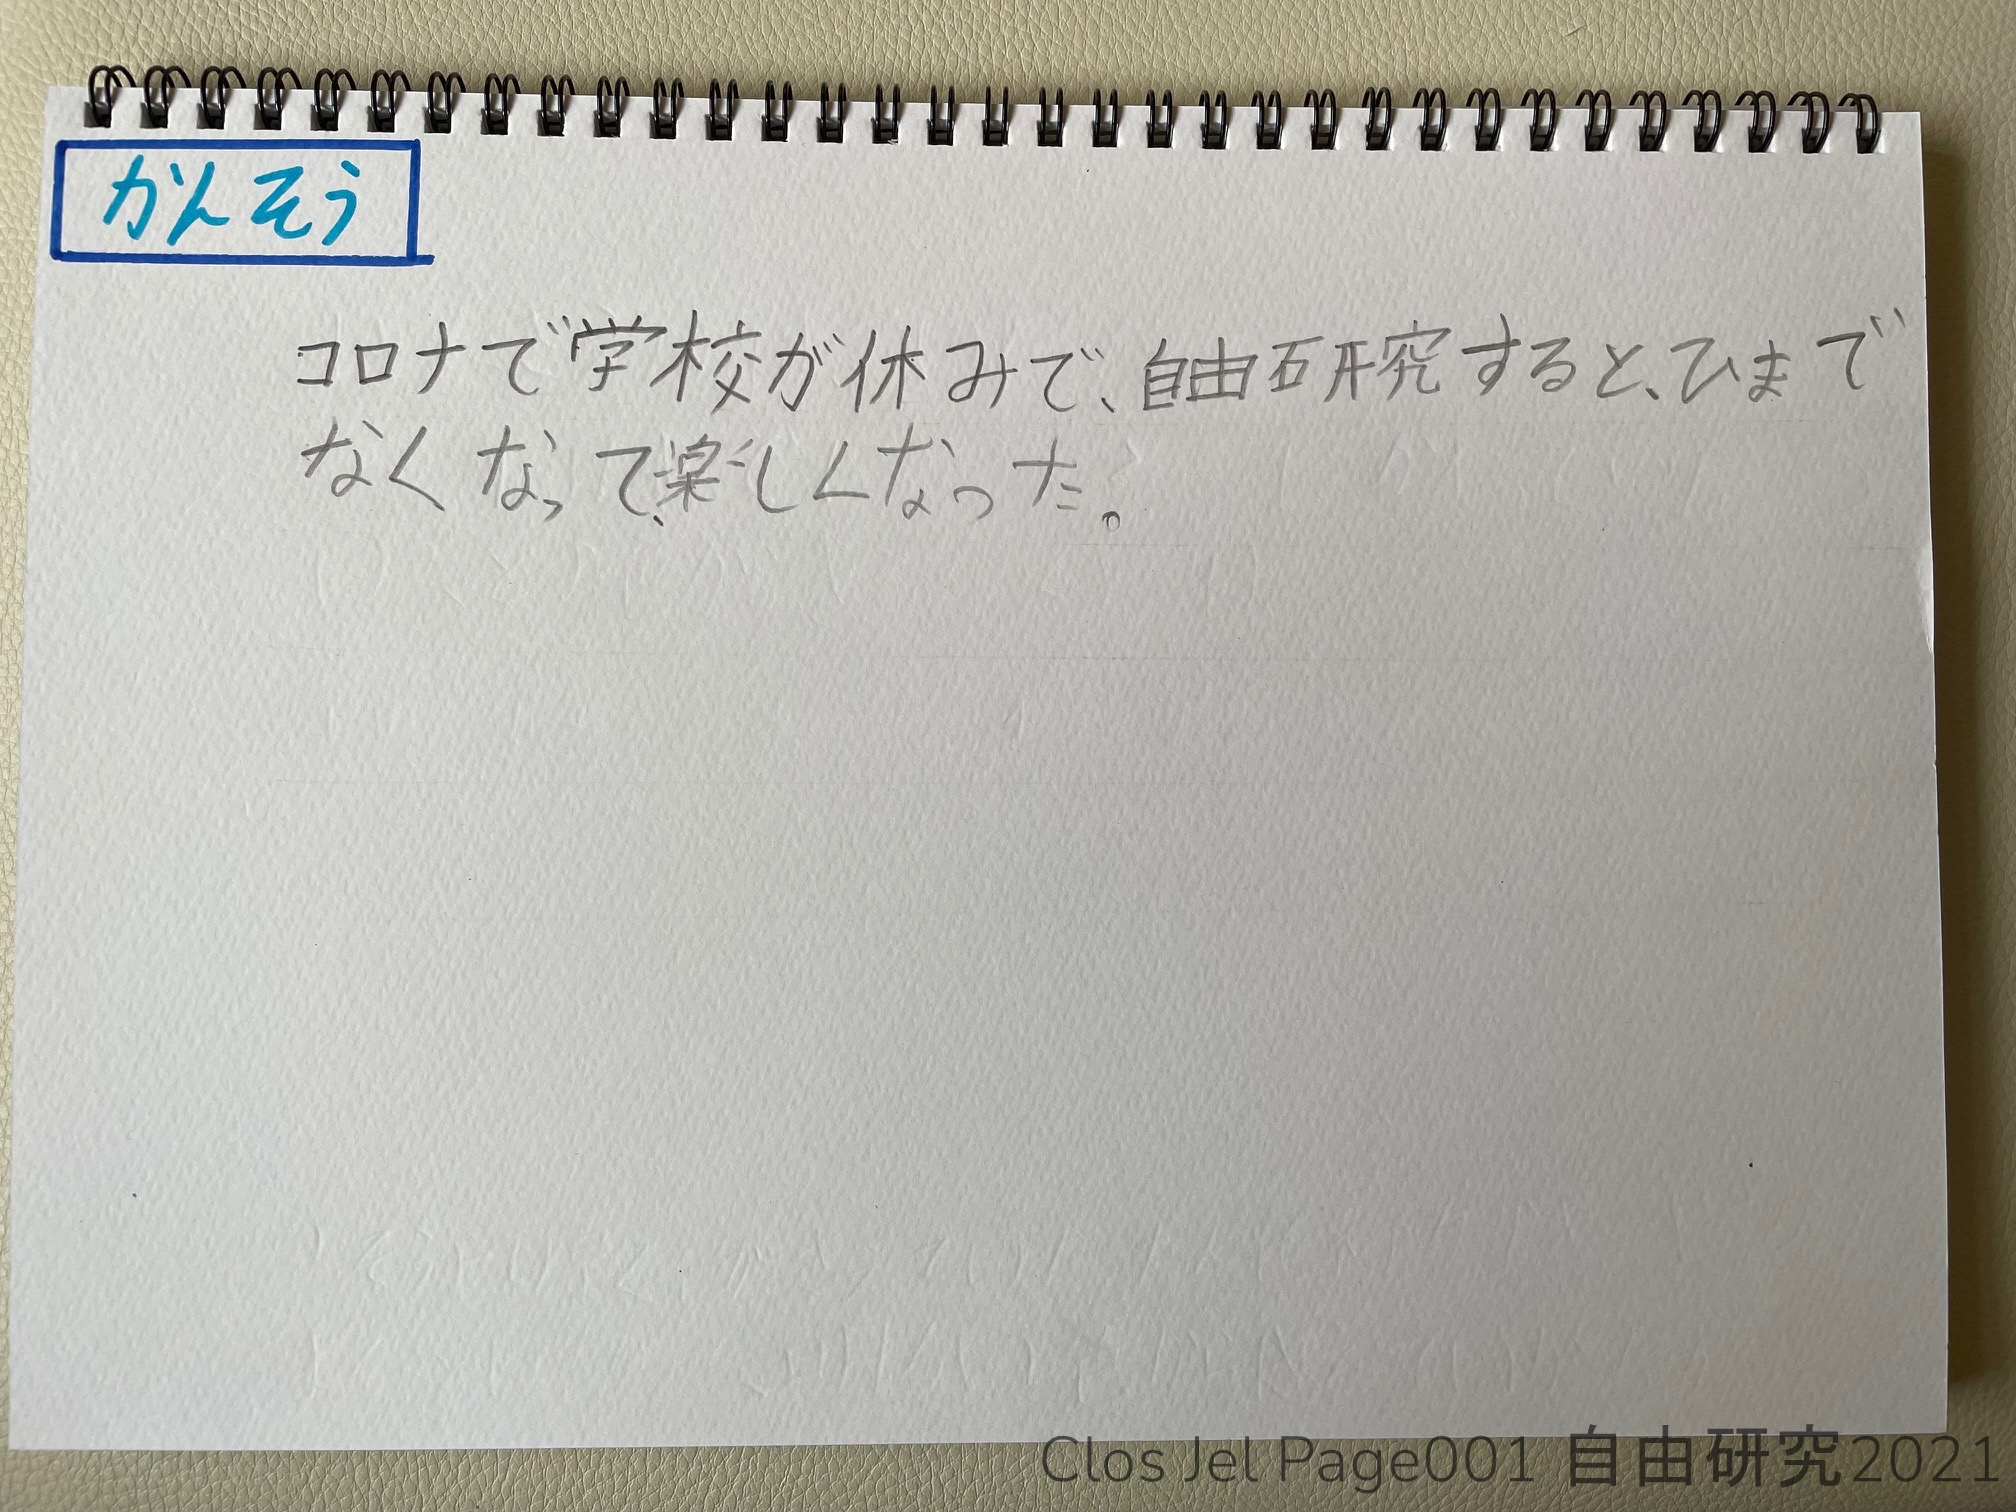 かんそう
コロナで学校が休みで、自由研究すると、ひまで
なくなって、楽しくなった。
Clos Jel Page001 自由研究2021